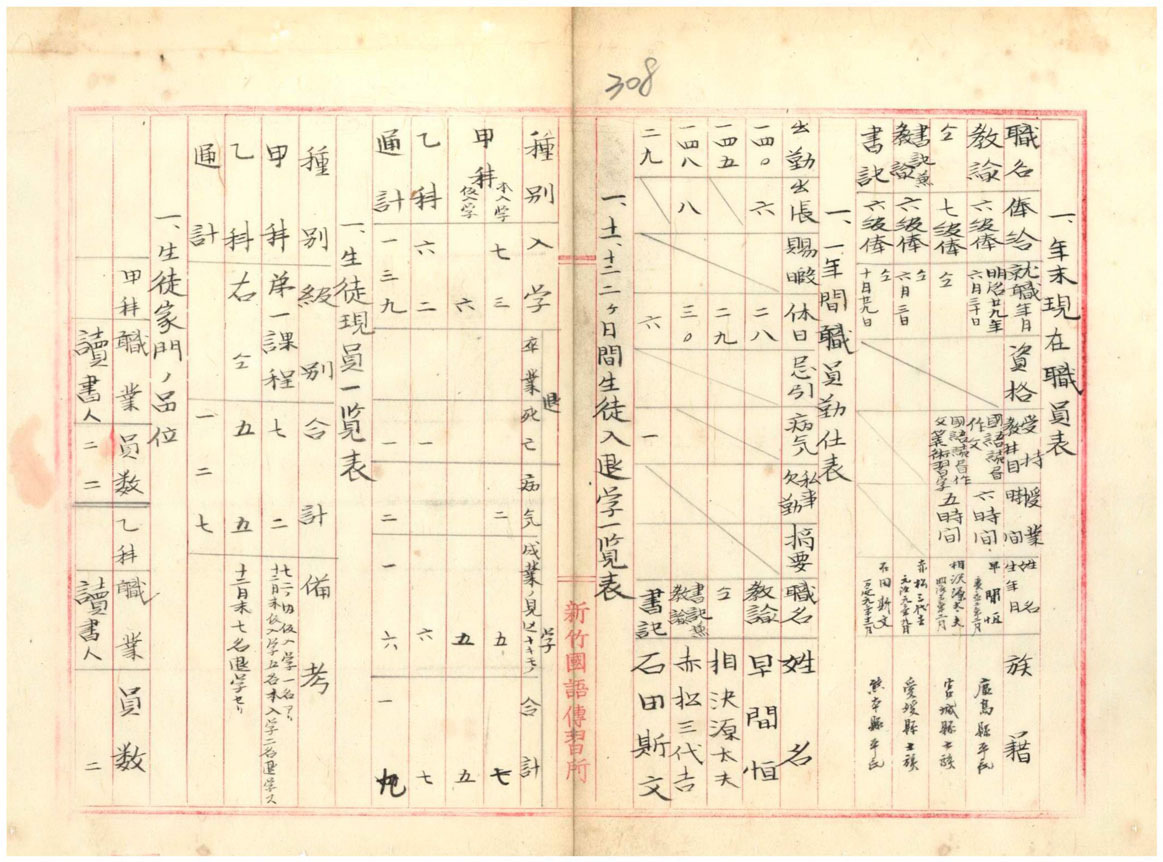 308
一、年末現在職員表
職名 俸給 就職年月 資格 受持教科目 授業時間 姓名生年月 族籍
教諭 六級俸 明治廿九年六月三十日 國語讀書作文 六時間 早間恒 廣島縣平民
仝 七級俸 仝 國語讀書作文算術習字 五時間 相沢源太夫 宮城縣士族
書記兼教諭 六級俸 仝六月三日 赤松三代吉 愛媛縣士族
書記 六級俸 仝十月廿九日 石田斯文 熊本縣平民
一、一年間職員勤仕表
出勤 出張 賜暇 休日 忌引 病気 私事欠勤 摘要 職名 姓名
一四〇 六 二八 教諭 早間恒
一四五 二九 仝 相決源太夫
一四八 八 三〇 一 書記兼教諭 赤松三代吉
二九 六 書記 石田斯文
一、十一、十二二ヶ日間生徒入退学一覧表
新竹國語傳習所
種別 入学 卒業 退学 死亡 病気 成業ノ見込ナキモノ 合計
甲科 本入学 七 二 五 七
仮入学 六 五 五
乙科 六二 一 一 六 七
通計 一三九 一 二 一 六 一九
一、生徒現員一覧表
種別 級別 合計 備考
甲科 第一課程 七二
十二月末仮入学五名本入学二名退学ス
乙科 右仝 五五 十二月末七名退学セリ
通計 一二七
一、生徒家門ノ品位
甲科 職業 員数 乙科 職業 員数
讀書人 二二 讀書人 二